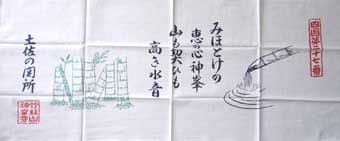 四国第二十七番
みほとけの
恵の心神峯
山も契ひも
高き水音
土佐の関所
竹林山
神峯寺